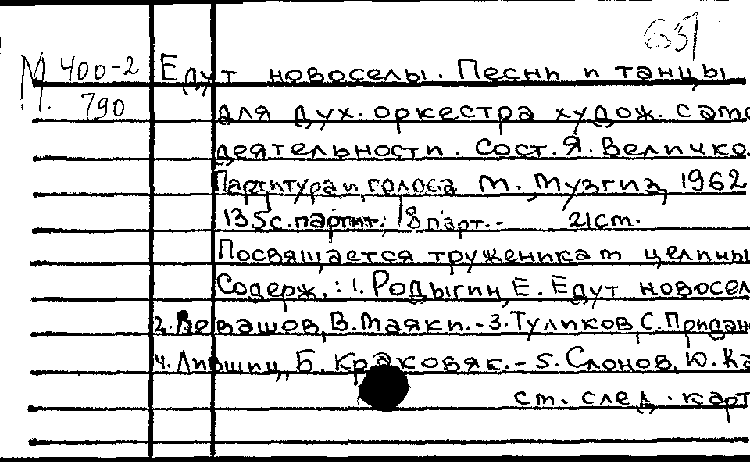 651
М 400-2
790
Едут новоселы. Песни и танцы
для дух. оркестра худож. само
деятельности. Сост. Я. Величко.
Партитура и голоса М., Музгиз, 1962
135с. партит.; 18 парт.- 21см.
Посвящается труженикам целины
Содерж.: 1. Родыгин, Е. Едут новосел
2. Левашов, В. Маяки.-3. Туликов, С. Придан
4. Лившиц, Б. Краковяк.-5. Слонов, Ю. Ка
см. след. карт